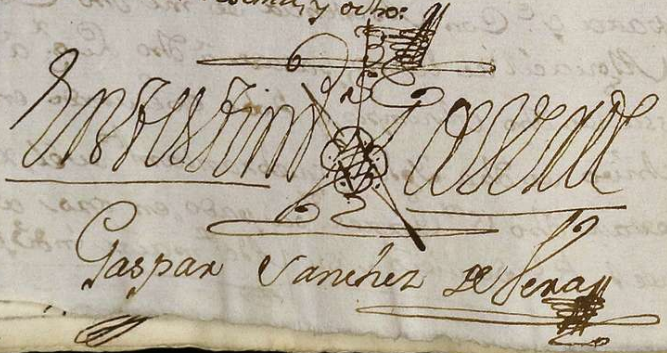 y ocho:
En testim de Verd
Gaspar Sanchez de Vera